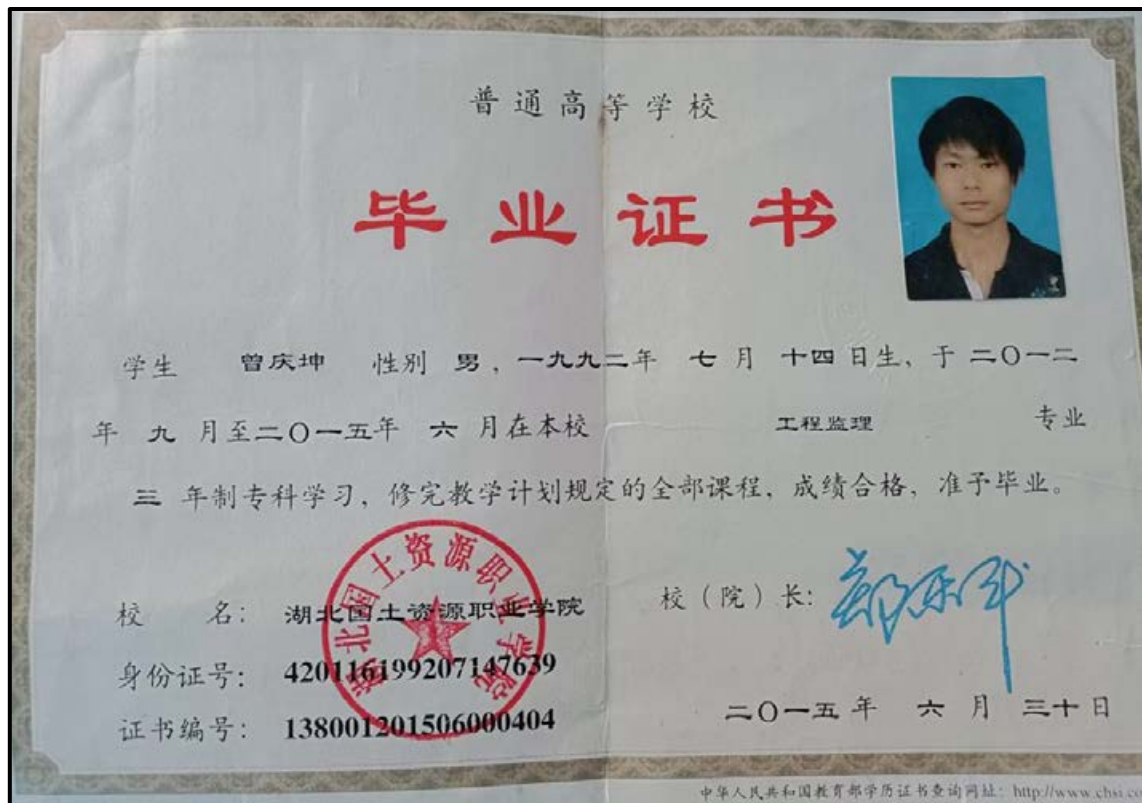 普通高等学校
毕业证书
学生 曾庆坤 性别 男，一九九二年 七 月 十四 日生、于 二〇一二
年 九 月至二〇一五年 六 月在本校 工程监理 专业
三 年制专科学习，修完教学计划规定的全部课程，成绩合格，准予毕业。
湖北国土资源职业学院
校 名： 湖北国土资源职业学院 校（院）长：
身份证号： 420116199207147639
证书编号： 138001201506000404
二〇一五年 六 月 三十日
中华人民共和国教育部学历证书查询网址：http://www.chsi.co